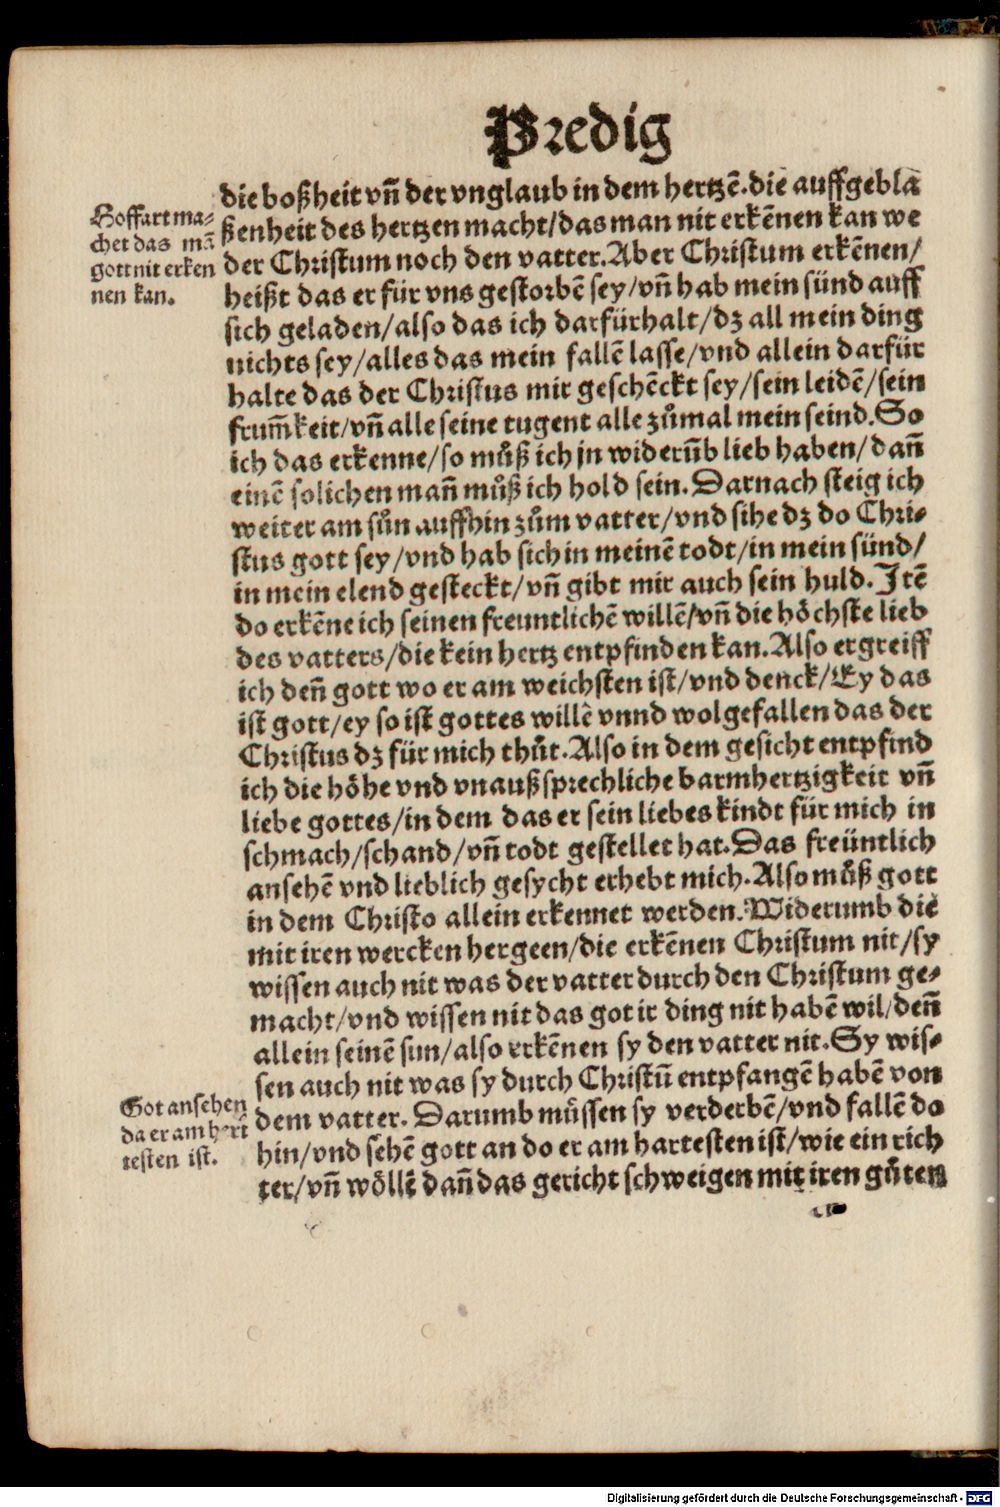 Predig
die boßheit vñ der vnglaub in dem hertzē. die auffgebla
ßenheit des hertzen macht/das man nit erkēnen kan we
der Christum noch den vatter. Aber Christum erkēnen/
heißt das er für vns gestorbē sey/vñ hab mein sünd auff
sich geladen/also das ich darfürhalt/dz all mein ding
nichts sey/alles das mein fallē lasse/vnd allein darfür
halte das der Christus mir geschēckt sey/sein leidē/sein
frum̄keit/vñ alle seine tugent alle zůmal mein seind. So
ich das erkenne/so můß ich jn widerūb lieb haben/dañ
einē solichen mañ můß ich hold sein. Darnach steig ich
weiter am sůn auffhin zům vatter/vnd sihe dz do Chri-
stus gott sey/vnd hab sich in meinē todt/in mein sünd/
in mein elend gesteckt/vñ gibt mir auch sein huld. Itē
do erkēne ich seinen freuntlichē willē/vñ die höchste lieb
des vatters/die kein hertz entpfinden kan. Also ergreiff
ich deñ gott wo er am weichsten ist/vnd denck/Ey das
ist gott/ey so ist gottes willē vnnd wolgefallen das der
Christus dz für mich thůt. Also in dem gesicht entpfind
ich die höhe vnd vnaußsprechliche barmhertzigkeit vñ
liebe gottes/in dem das er sein liebes kindt für mich in
schmach/schand/vñ todt gestellet hat. Das freüntlich
ansehē vnd lieblich gesycht erhebt mich. Also můß gott
in dem Christo allein erkennet werden. Widerumb die
mit iren wercken hergeen/die erkēnen Christum nit/sy
wissen auch nit was der vatter durch den Christum ge-
macht/vnd wissen nit das got ir ding nit habē wil/deñ
allein seinē sun/also erkēnen sy den vatter nit. Sy wis-
sen auch nit was sy durch Christū entpfangē habē von
dem vatter. Darumb müssen sy verderbē/vnd fallē do
hin/vnd sehē gott an do er am hartesten ist/wie ein rich
ter/vñ wöllē dañ das gericht schweigen mit iren gůten
Hoffart ma-
chet das mā
gott nit erken
nen kan.
Got ansehen
da er am hert
testen ist.
Digitalisierung gefördert durch die Deutsche Forschungsgemeinschaft - DFG